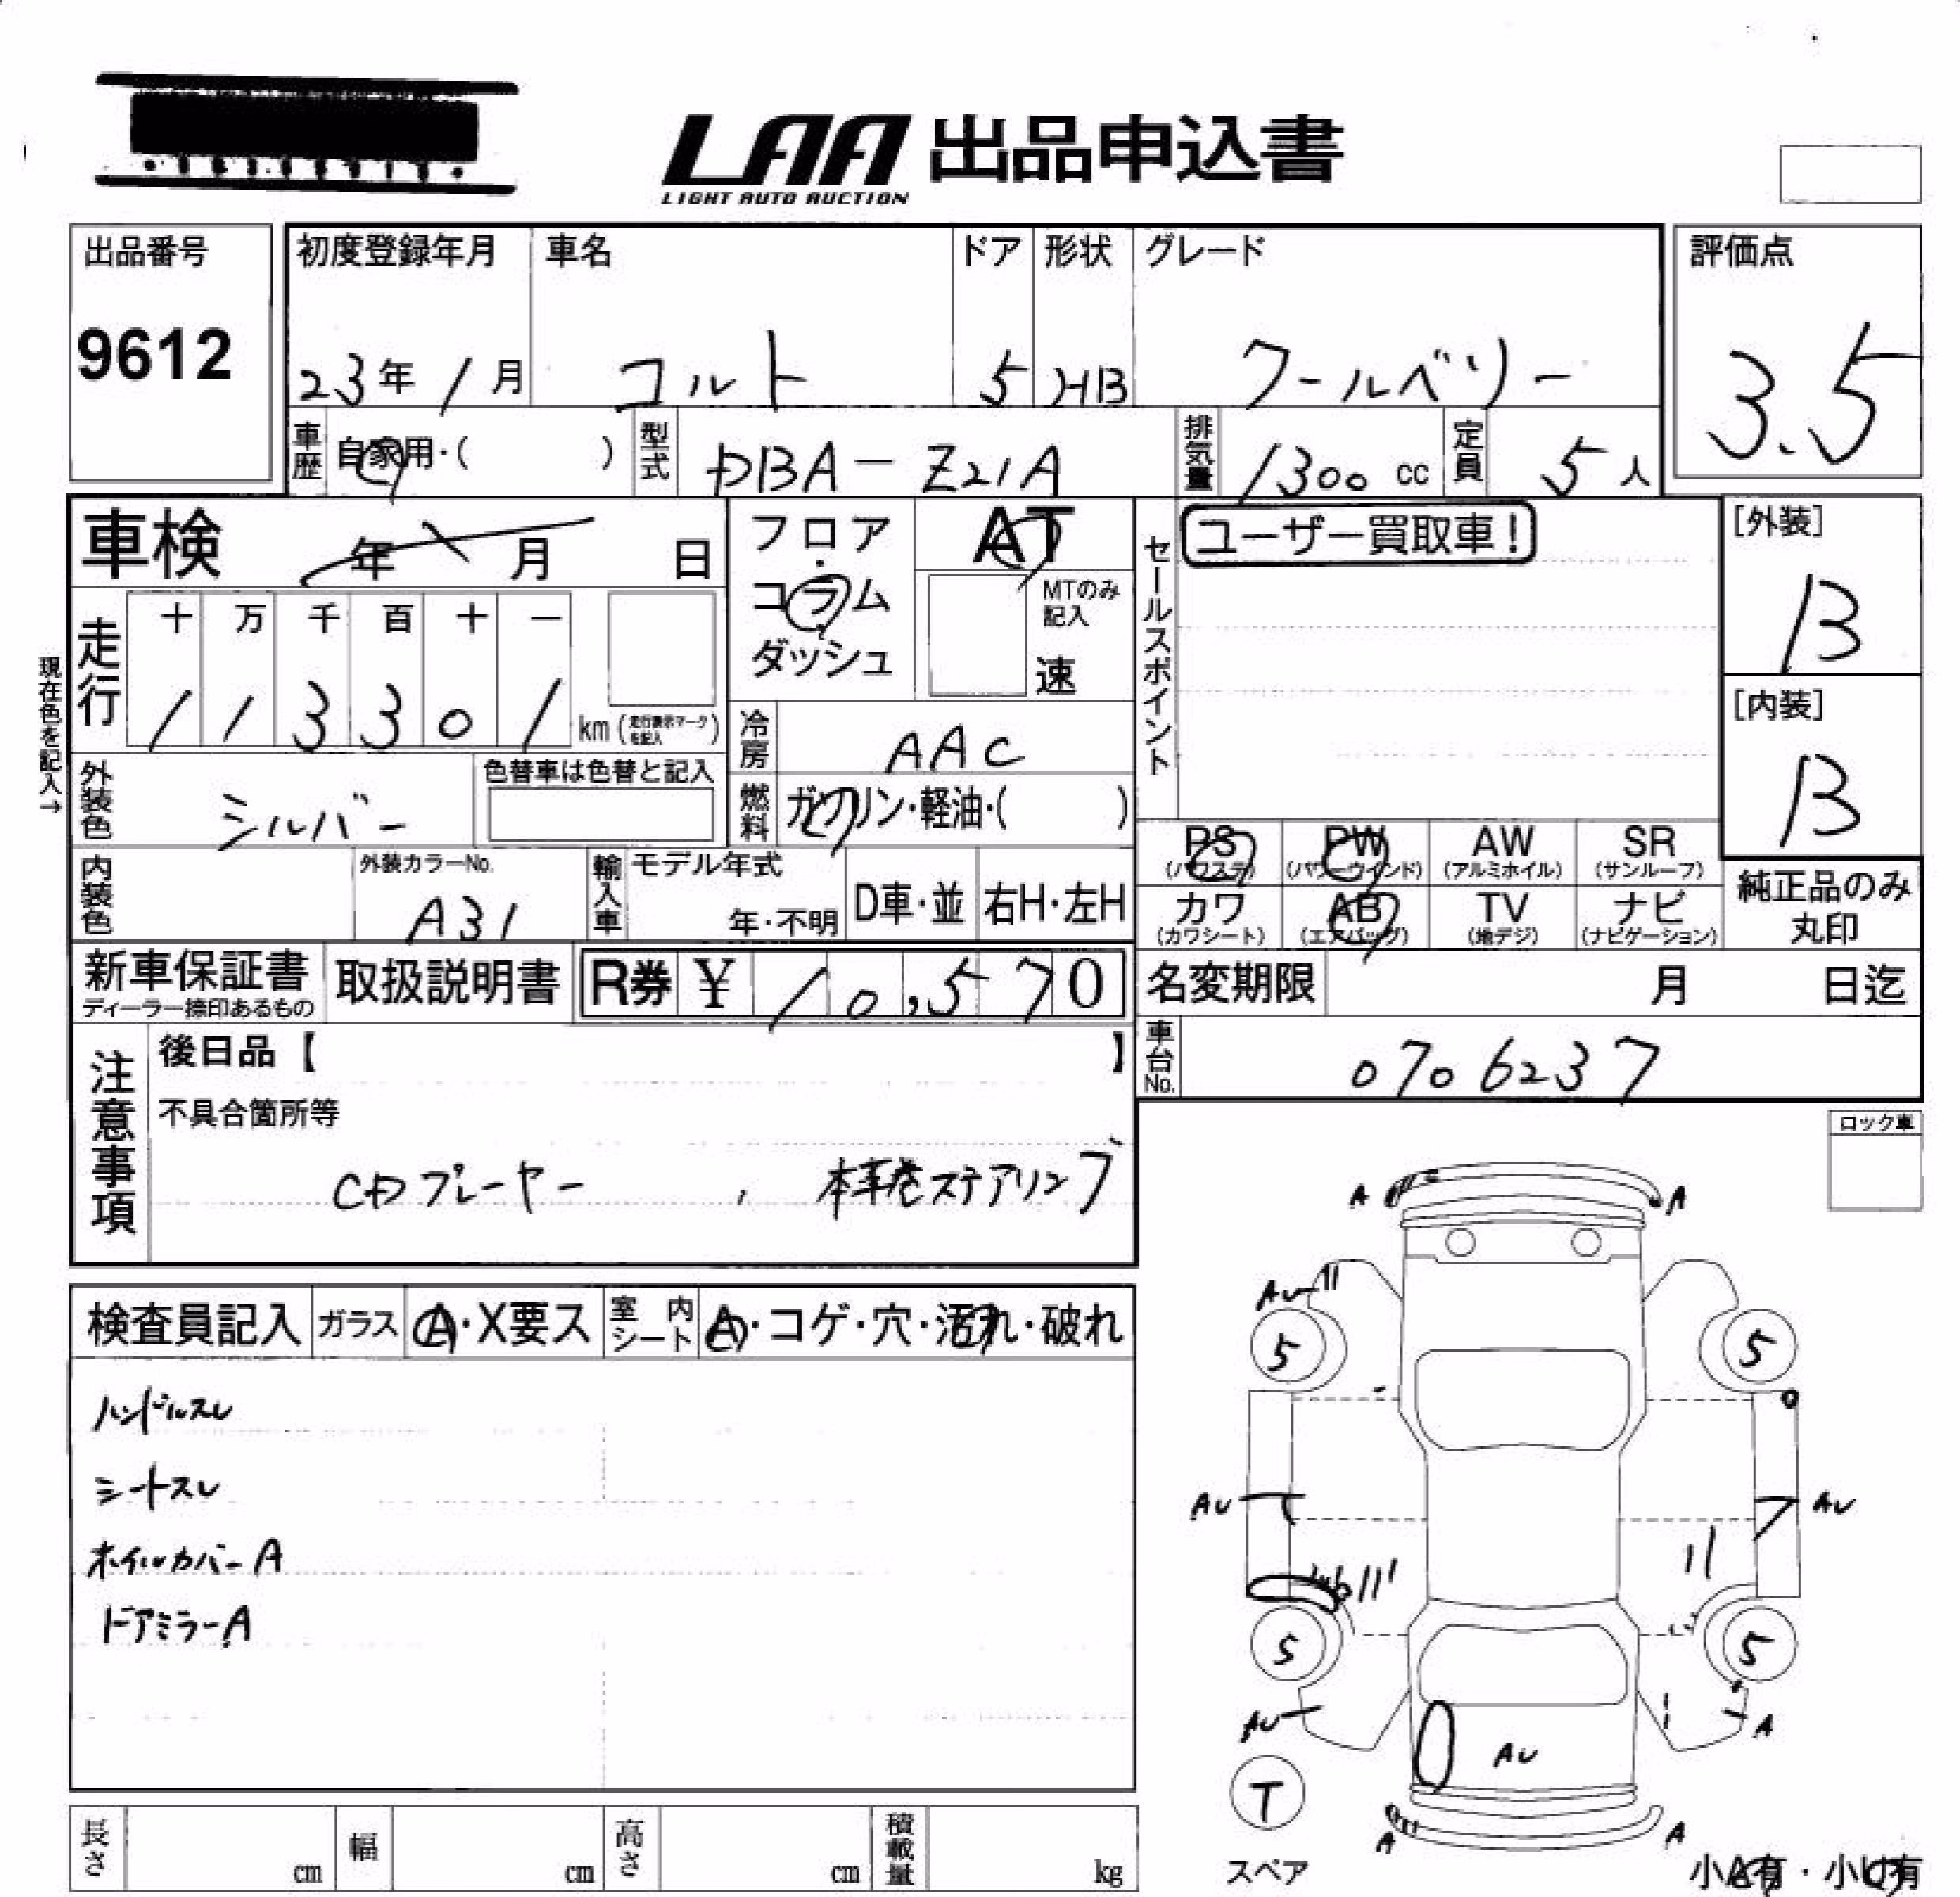 LAA 出品申込書
LIGHT AUTO AUCTION
出品番号
9612
初度登録年月
23年1月
車名
コルト
ドア
5
形状
HB
グレード
クールベリー
評価点
3.5
車歴 自家用・( )
型式 DBA-Z21A
排気量 1300 cc
定員 5人
車検 年 月 日
フロア・コラム・ダッシュ
AT
MTのみ記入
速
セールスポイント
ユーザー買取車!
[外装]
B
[内装]
B
走行
十 万 千 百 十 一
1 1 3 3 0 1 km (走行表示マークを記入)
現在色を記入→
冷房 AAC
燃料 ガソリン・軽油・( )
外装色 シルバー
色替車は色替と記入
内装色
外装カラーNo.
A31
輸入車
モデル年式
年・不明
D車・並
右H・左H
PS (パワステ)
PW (パワーウインド)
AW (アルミホイル)
SR (サンルーフ)
カワ (カワシート)
AB (エアバッグ)
TV (地デジ)
ナビ (ナビゲーション)
純正品のみ
丸印
新車保証書
ディーラー捺印あるもの
取扱説明書
R券 ¥ 10,570
名変期限 月 日迄
車台No. 0706237
注意事項
後日品【 】
不具合箇所等
CDプレーヤー , 本革巻ステアリング
ロック車
検査員記入
ガラス A・X要ス
室内シート A・コゲ・穴・汚れ・破れ
ハンドルスレ
シートスレ
ホイルカバーA
ドアミラーA
A A
AU
5 5
AU AU
5 5
AU A
AU
T
スペア
A A
小A有・小U有
長さ cm
幅 cm
高さ cm
積載量 kg